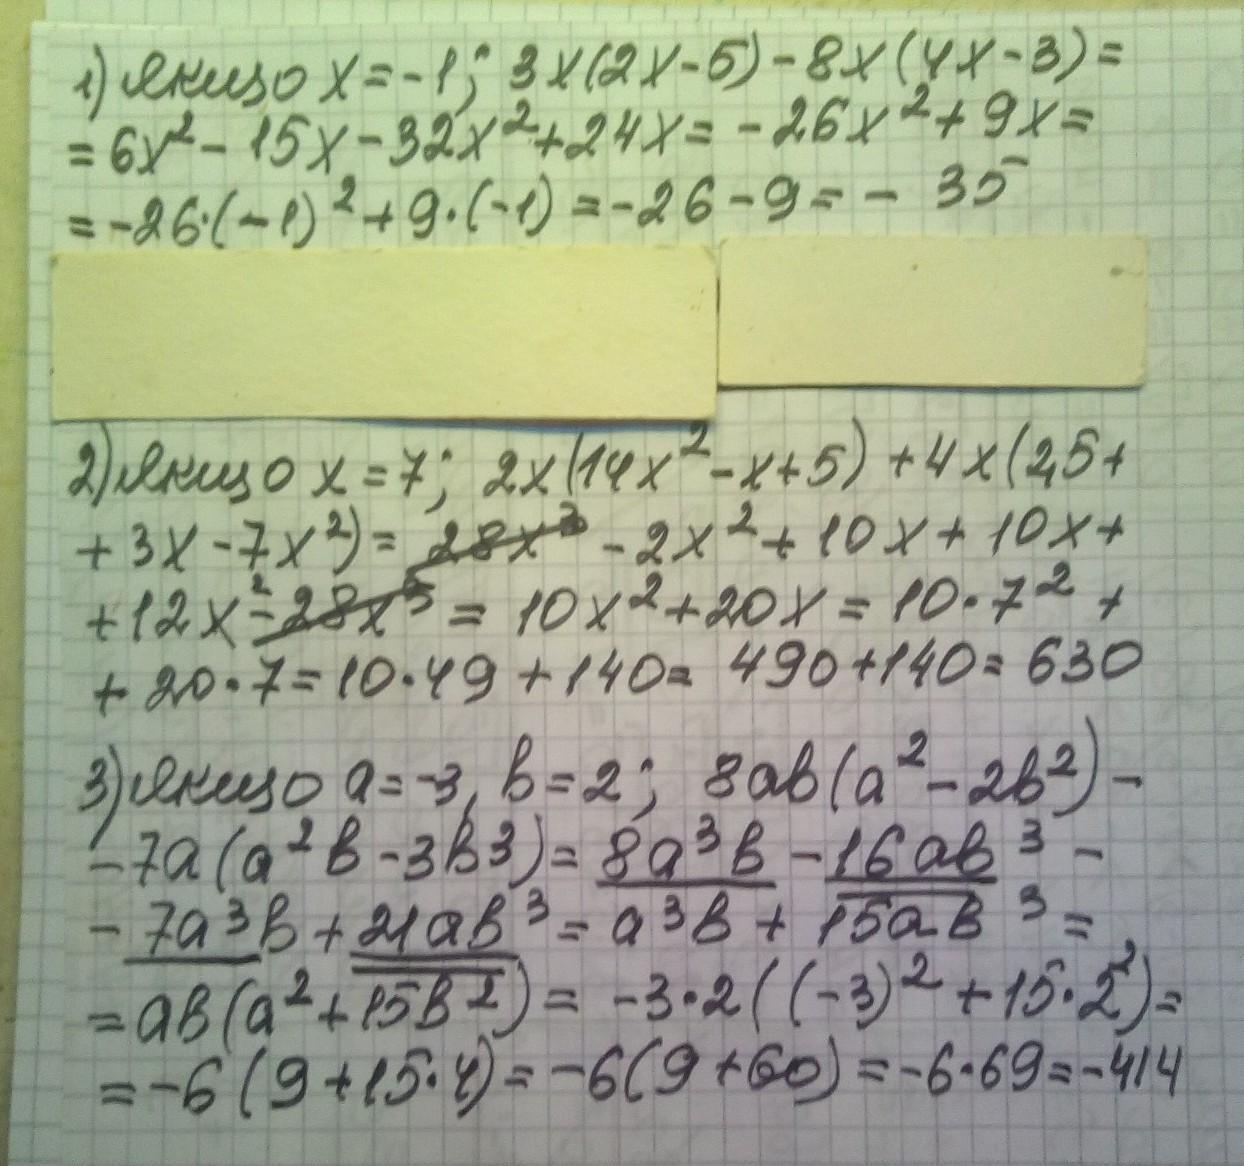 1) Якщо x = -1; 3x(2x-5) - 8x(4x-3) =
= 6x² - 15x - 32x² + 24x = -26x² + 9x =
= -26·(-1)² + 9·(-1) = -26 - 9 = - 35
2) Якщо x = 7; 2x(14x² - x + 5) + 4x(2,5 +
+ 3x - 7x²) = 28x³ - 2x² + 10x + 10x +
+ 12x² - 28x³ = 10x² + 20x = 10·7² +
+ 20·7 = 10·49 + 140 = 490 + 140 = 630
3) Якщо a = -3, b = 2; 8ab(a² - 2b²) -
- 7a(a²b - 3b³) = 8a³b - 16ab³ -
- 7a³b + 21ab³ = a³b + 15ab³ =
= ab(a² + 15b²) = -3·2((-3)² + 15·2²) =
= -6(9 + 15·4) = -6(9 + 60) = -6·69 = -414